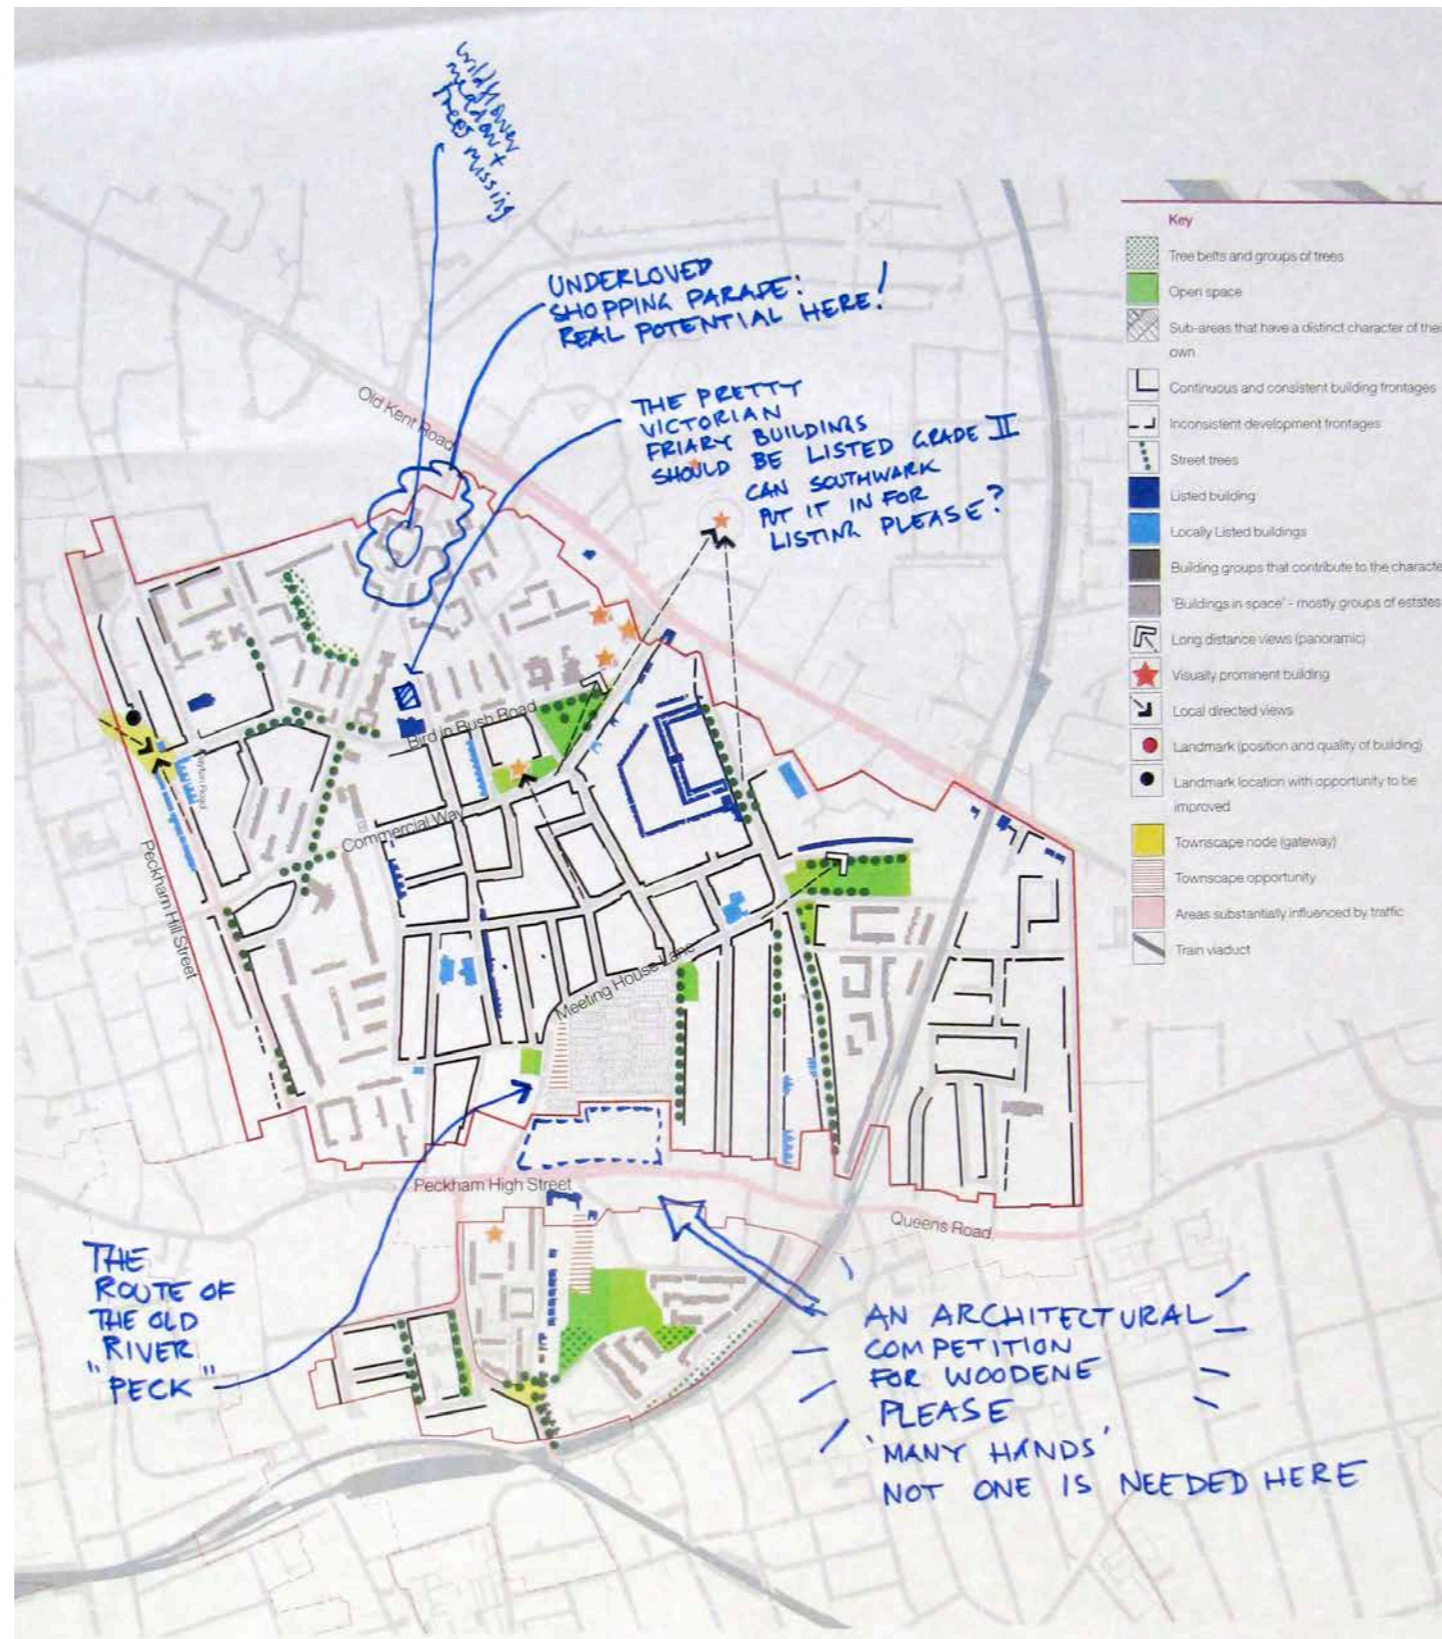 wildflower
meadow +
trees missing
UNDERLOVED
SHOPPING PARADE:
REAL POTENTIAL HERE!
THE PRETTY
VICTORIAN
FRIARY BUILDINGS
SHOULD BE LISTED GRADE II
CAN SOUTHWARK
PUT IT IN FOR
LISTING PLEASE?
Old Kent Road
Bird in Bush Road
Commercial Way
Peckham Hill Street
Meeting House Lane
Peckham High Street
Queens Road
THE
ROUTE OF
THE OLD
RIVER
"PECK"
AN ARCHITECTURAL
COMPETITION
FOR WOODENE
PLEASE
'MANY HANDS'
NOT ONE IS NEEDED HERE
Key
Tree belts and groups of trees
Open space
Sub-areas that have a distinct character of thei
own
Continuous and consistent building frontages
Inconsistent development frontages
Street trees
Listed building
Locally Listed buildings
Building groups that contribute to the characte
'Buildings in space' - mostly groups of estates
Long distance views (panoramic)
Visually prominent building
Local directed views
Landmark (position and quality of building)
Landmark location with opportunity to be
improved
Townscape node (gateway)
Townscape opportunity
Areas substantially influenced by traffic
Train viaduct